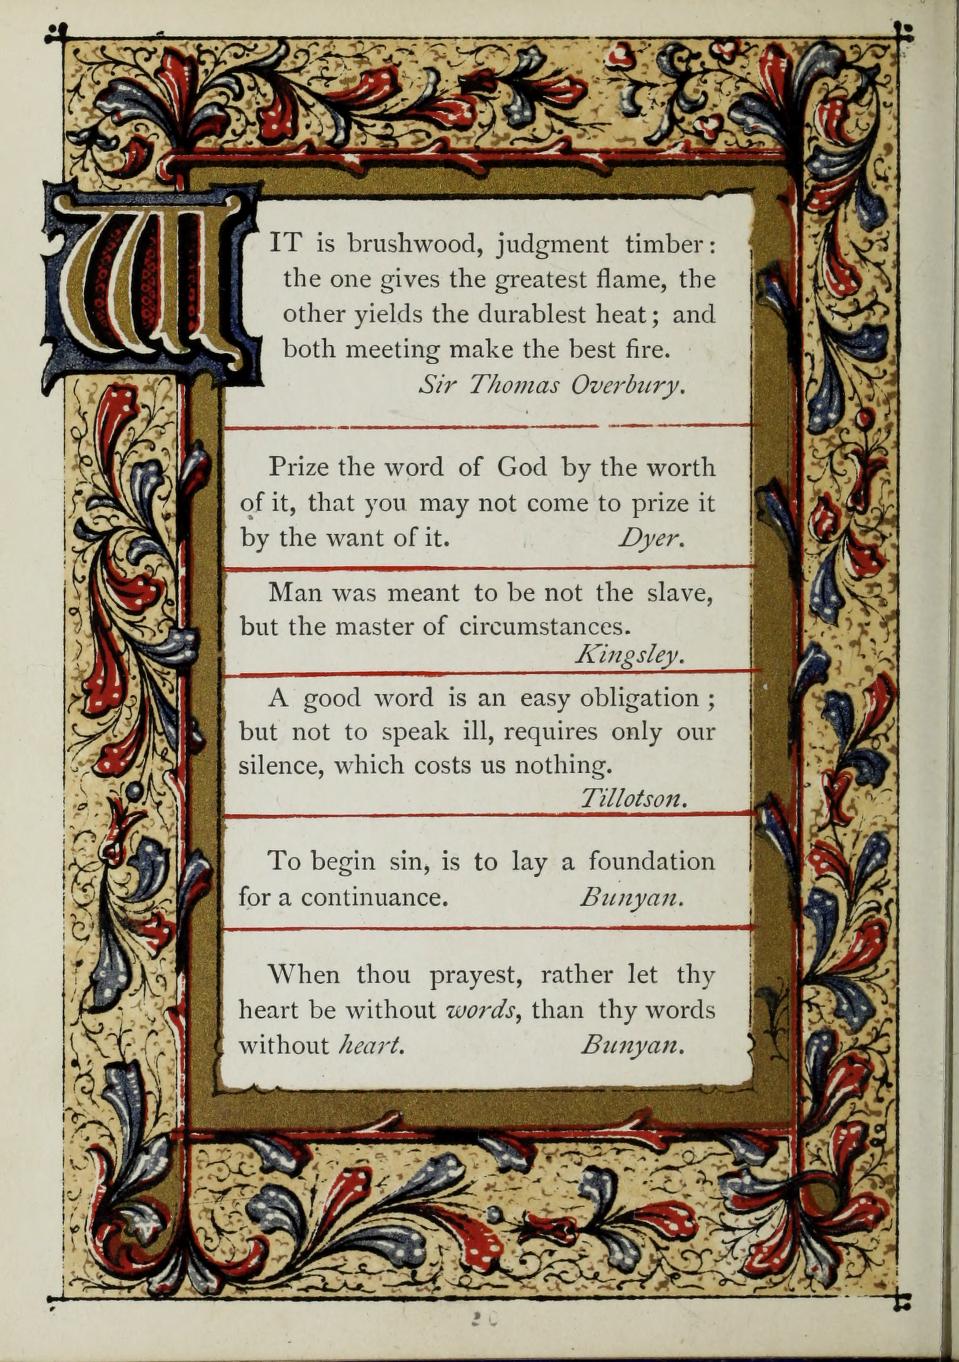 WIT is brushwood, judgment timber:
the one gives the greatest flame, the
other yields the durablest heat; and
both meeting make the best fire.
Sir Thomas Overbury.
Prize the word of God by the worth
of it, that you may not come to prize it
by the want of it. Dyer.
Man was meant to be not the slave,
but the master of circumstances.
Kingsley.
A good word is an easy obligation ;
but not to speak ill, requires only our
silence, which costs us nothing.
Tillotson.
To begin sin, is to lay a foundation
for a continuance. Bunyan.
When thou prayest, rather let thy
heart be without words, than thy words
without heart. Bunyan.